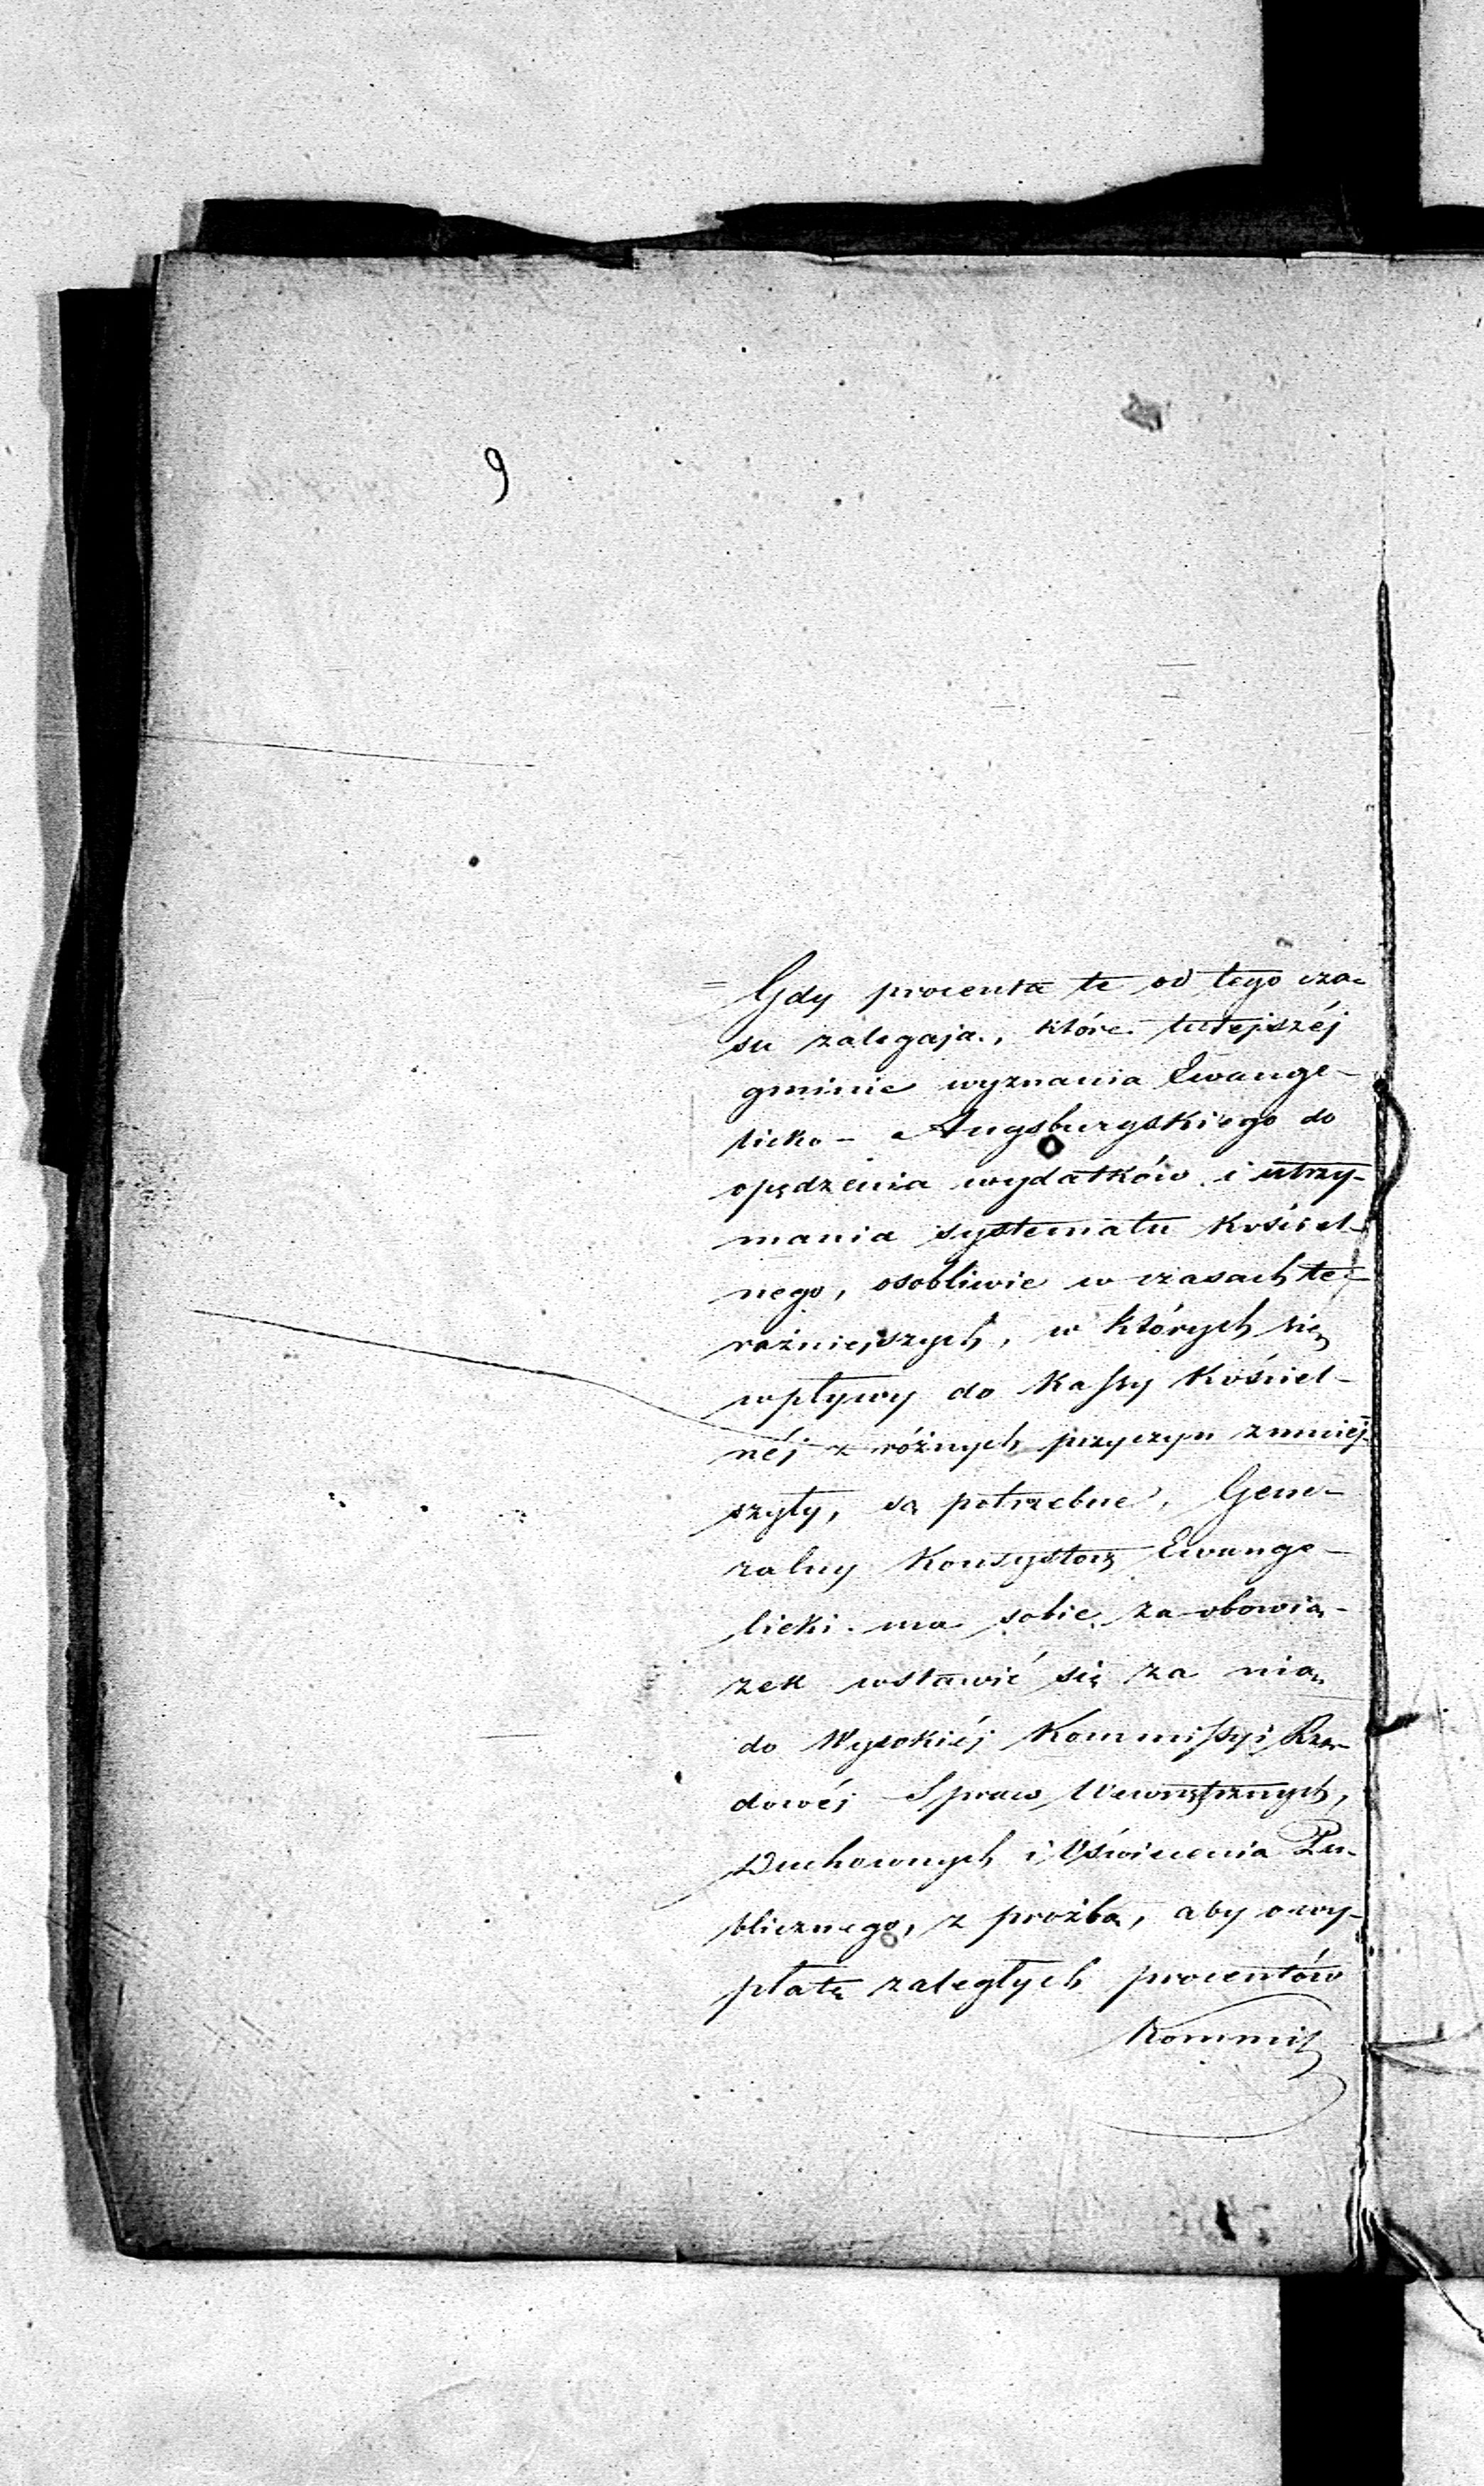 9
= Gdy procenta te od tego cza-
su zalegają, które tutejszéj
gminie wyznania Ewange-
licko-Augsburgskiego do
opędzenia wydatków i utrzy-
mania systematu Kościel-
nego, osobliwie w czasach te-
raźniejszych, w których się
wpływy do Kassy Kościel-
néj z różnych przyczyn zmniej-
szyły, są potrzebne, Gene-
ralny Konsystorz Ewange-
licki ma sobie za obowią-
zek wstawić się za nią
do Wysokiéj Kommissyi Rzą-
dowéj Spraw Wewnętrznych,
Duchownych i Oświecenia Pu-
blicznego, z prożbą, aby o wy-
płatę zaległych procentów
Kommis